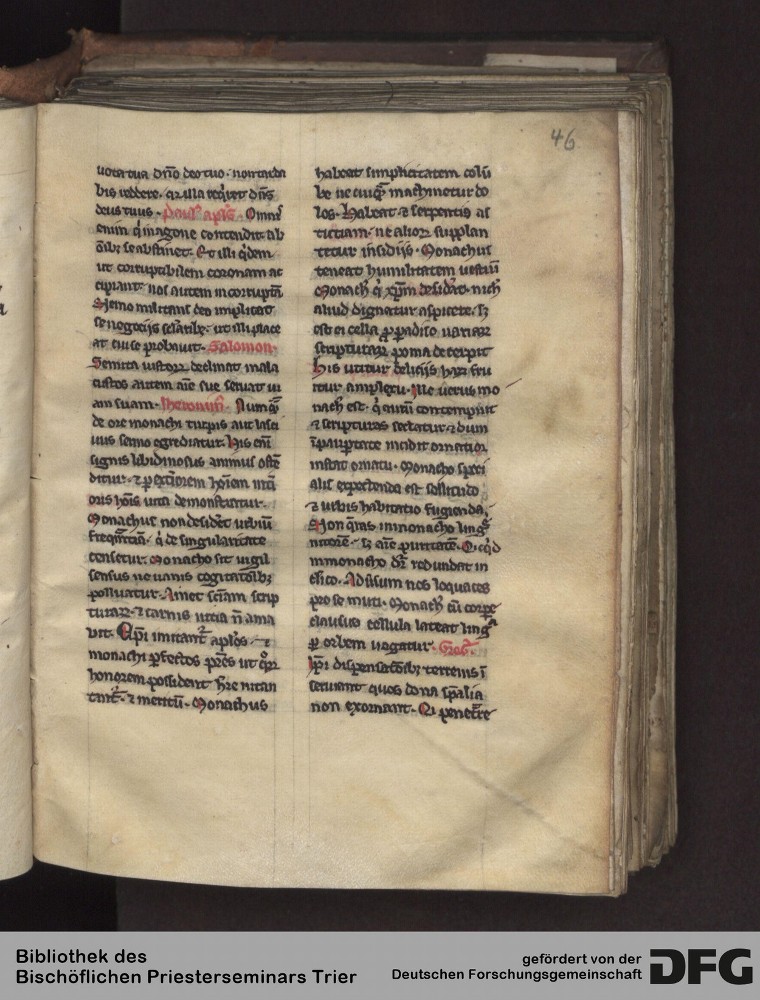 46
uota tua dño deo tuo · non tarda
bis reddere · qr illa reqͥret dñs
deus tuus · Paulꝰ aplꝰs · Omnis
enim qͥ in agone contendit · ab
oĩbꝫ se abstinet · Et illi qͥdem
ut corruptibilem coronam ac
cipiant · nos autem incorruptã
Nemo militans deo implicat
se negocijs sclaribꝫ · ut illi place
at cui se probauit · Salomon ·
Semita iustorꝝ declinat mala
custos autem aĩe sue seruat ui
am suam · Iheronimꝰ · Numqͣ
de ore monachi turpis aut lasci
uus sermo egrediatur · His eni
signis libidinosus animus oste
ditur · ⁊ ꝑ exteriorem hoĩem int
oris hoĩs uita demonstratur ·
Monachus non desidet urbiũ
frequentiã · qͥ de singularitate
censetur · Monacho sit uigil
sensus ne uanis cogitatoĩbꝫ
polluatur · Amet sciam scrip
turarꝝ · ⁊ carnis uitia ñ ama
bit · Epi imitant aplos · ⁊
monachi ꝑfectos pres ut qͦrꝝ
honorem possident
⁊ meritũ · Monachus
habeat simplicitatem colũ
be ne cuiqͣ machinetur do
los · Habeat ⁊ serpentis as
tutiam · ne aliorꝝ supplan
tetur insidijs · Monachus
teneat humilitatem uestiũ
Monachꝰ qͥ xpm desidat · nich
aliud dignatur aspicere · sꝫ
est ei cella ꝓ paradiso uariarꝝ
scripturarꝝ poma decerpit
his utitur delicijs harꝝ fru
itur amplexu · Ille uerus mo
nachꝰ est · qͥ aurũ contempnit
⁊ scripturas sectatur ⁊ dum
in paupertate incidit ornatior
instat ornatu · Monacho spẽci
alis expectenda est sollicitudo
⁊ urbis habitatio fugienda ·
Non qͥras in monacho lingͤ
nitorẽ · sꝫ aĩe puritatẽ ·
in monacho dr̃ redundat in
elico · Ad usum nos loquaces
pro se muti · Monachꝰ cũ corpe
clausus cellula lateat lingͣ
ꝑ orbem uagatur · Greg ·
Ipi dispensatoĩbꝫ terrenis i
seruiant quos dona spalia
non exornant · Qi penetre
Bibliothek des
Bischöflichen Priesterseminars Trier
gefördert von der
Deutschen Forschungsgemeinschaft
DFG